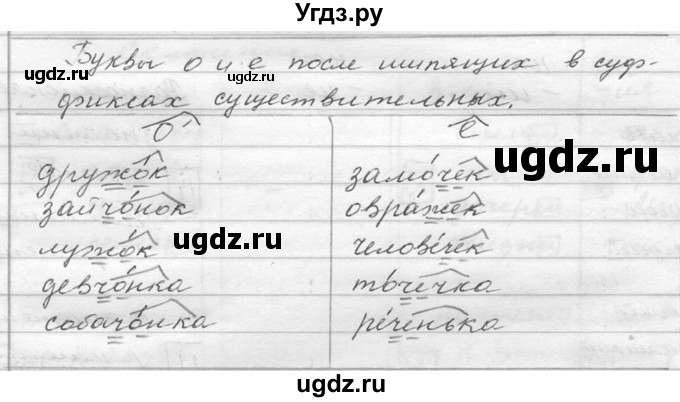 Угдз.ру
Буквы о и е после шипящих в суф-
ugdz.ru
фиксах существительных.
о е
ugdz.ru
дружок замочек
зайчонок овражек
ugdz.ru
лужок человечек
девчонка точечка
собачонка реченька
ugdz.ru
ugdz.ru